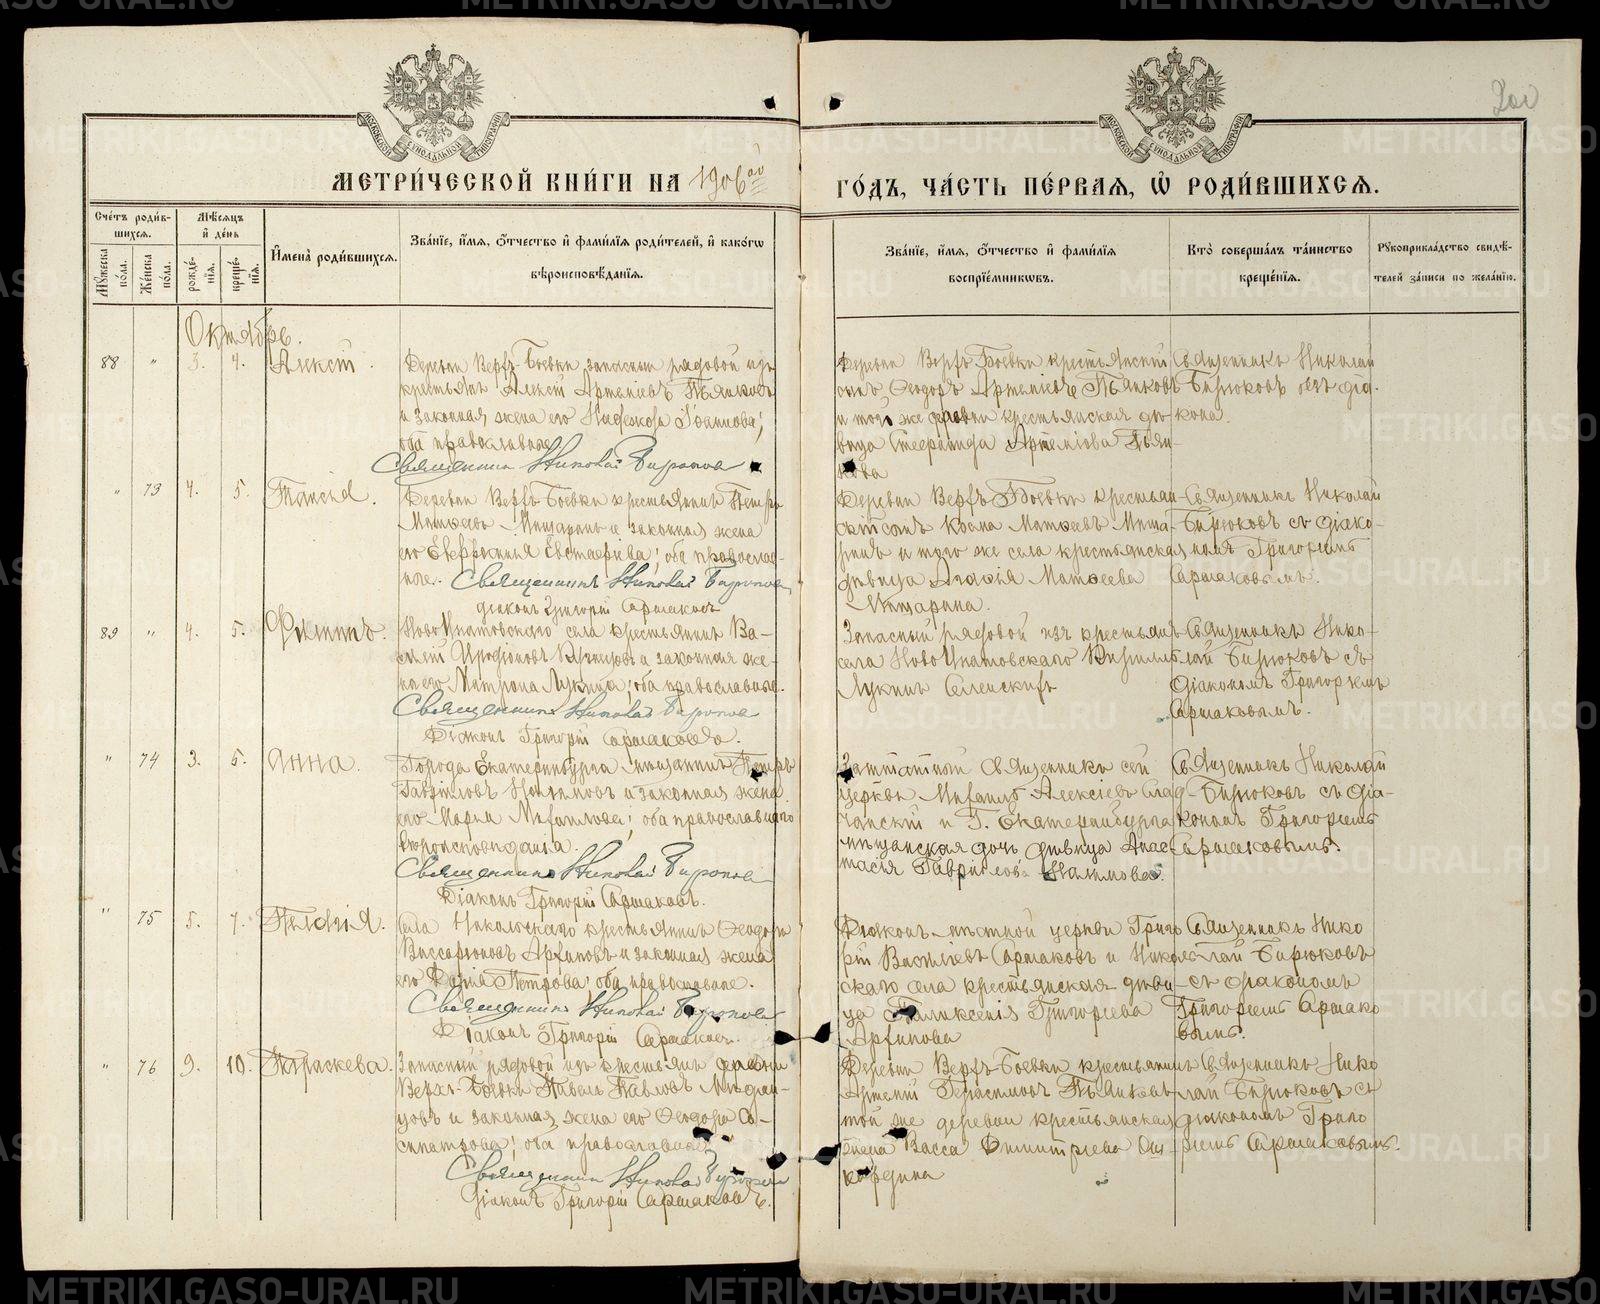 МЕТРИ́ЧЕСКОЙ КНИ́ГИ НА 1906ой ГО́ДЪ, ЧА́СТЬ ПЕ́РВАЯ, Ѡ҆ РОДИ́ВШИХСЯ.
200
МОСКОВСКОЙ СѴНОДАЛЬНОЙ ТИПОГРАФІИ
МОСКОВСКОЙ СѴНОДАЛЬНОЙ ТИПОГРАФІИ
Сче́тъ роди́в-
шихся.
Мꙋ́жеска по́ла.
Же́нска по́ла.
Мѣ́сяцъ и҆ де́нь
рожде́нїя.
креще́нїя.
И҆мена̀ роди́вшихся.
Зва́нїе, и҆́мя, ѻ҆́тчество и҆ фами́лїя роди́телей, и҆ како́гѡ
вѣроисповѣ́данїя.
Зва́нїе, и҆́мя, ѻ҆́тчество и҆ фами́лїя
воспрїе́мникѡвъ.
Кто̀ соверша́лъ та́инство
креще́нїя.
Рꙋкоприкла́дство свидѣ́-
телей за́писи по жела́нїю.
Октябрь.
88 " 3. 4. Алексій.
Деревни Верхъ-Боевки запасный рядовой изъ
крестьянъ Алексій Артеміевъ Пьянковъ
и законная жена его Надежда Іоаннова;
оба православные
Священникъ Николай Бирюковъ
Деревни Верхъ-Боевки крестьянскій
сынъ Ѳеодоръ Артеміевъ Пьянковъ
и той же деревни крестьянская дѣ-
вица Артеміова Пьян-
кова
Священникъ Николай
Бирюковъ безъ діа-
кона.
" 73 4. 5. Таисія.
Деревни Верхъ-Боевки крестьянинъ Петръ
Матѳеевъ и законная жена
его Евфросинія Евстафіева; оба православ-
ные. Священникъ Николай Бирюковъ
Діаконъ Григорій Сармаковъ
Деревни Верхъ-Боевки крестьян-
скій сынъ Косма Матѳеевъ Миша-
ринъ и того же села крестьянская
дѣвица Агафія Матѳеева
Мишарина.
Священникъ Николай
Бирюковъ съ діако-
номъ Григоріемъ
Сармаковымъ.
89 " 4. 5. Филиппъ.
НовоИпатовскаго села крестьянинъ Ва-
силій и законная же-
на его Матрона Лукина; оба православные.
Священникъ Николай Бирюковъ
Діаконъ Григорій Сармаковъ.
Запасный рядовой изъ крестьянъ
села НовоИпатовскаго Кириллъ
Лукинъ
Священникъ Нико-
лай Бирюковъ съ
діакономъ Григоріемъ
Сармаковымъ.
" 74 3. 5. Анна.
Города Екатеринбурга мѣщанинъ Петръ
Гавріиловъ Налимовъ и законная жена
его Марія Михаилова; оба православнаго
вѣроисповѣданія.
Священникъ Николай Бирюковъ
Діаконъ Григорій Сармаковъ.
Заштатный Священникъ сей
церкви Михаилъ Алексіевъ Слад-
чанскій и Г. Екатеринбурга
мѣщанская дочь дѣвица Анас-
тасія Гавріилова Налимова.
Священникъ Николай
Бирюковъ съ діа-
кономъ Григоріемъ
Сармаковымъ.
" 75 5. 7. Пелагія.
Села Никольскаго крестьянинъ Ѳеодоръ
Виссаріоновъ Архиповъ и законная жена
его Дарія Петрова; оба православные.
Священникъ Николай Бирюковъ
Діаконъ Григорій Сармаковъ.
Діаконъ мѣстной церкви Григо-
рій Василіевъ Сармаковъ и Николь-
скаго села крестьянская дѣви-
ца Григоріева
Архипова
Священникъ Нико
лай Бирюковъ
съ діакономъ
Григоріемъ Сармако
вымъ.
" 76 9. 10. Параскева.
Запасный рядовой изъ крестьянъ деревни
Верхъ-Боевки Павелъ Павловъ
и законная жена его Ѳеодора Со-
сипатрова; оба православные
Священникъ Николай Бирюковъ
Діаконъ Григорій Сармаковъ.
Деревни Верхъ-Боевки крестьянинъ
Артемій Герасимовъ Пьянковъ
той же деревни крестьянская
Васса Димитріева Ош-
кордина
Священникъ Нико
лай Бирюковъ съ
діакономъ Григо
ріемъ Сармаковымъ.
METRIKI.GASO-URAL.RU